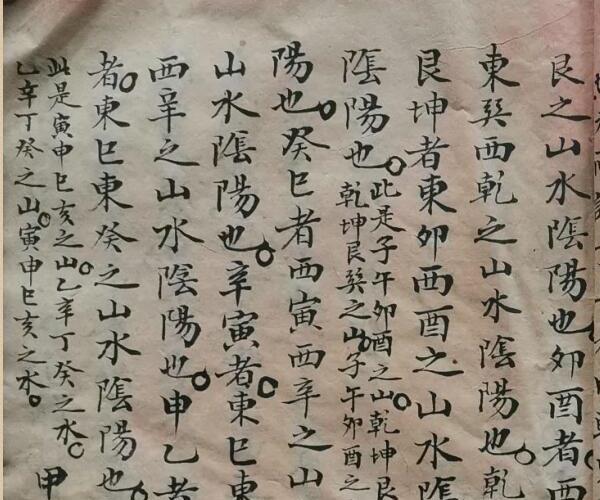 艮之山水陰陽也卯酉者西
東巽西乾之山水陰陽也乾
艮坤者東卯西酉之山水陰
陰陽也此是子午卯酉之山乾坤艮
乾坤艮巽之山子午卯酉之
陽也癸巳者西寅西辛之山
山水陰陽也辛寅者東巳東
西辛之山水陰陽也申乙者
者東巳東癸之山水陰陽也
此是寅申巳亥之山乙辛丁癸之水
乙辛丁癸之山寅申巳亥之水
甲